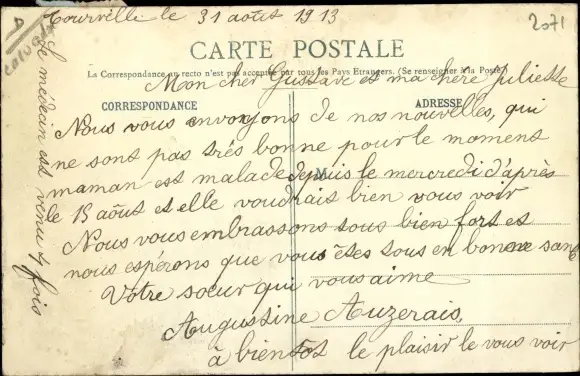 Tourville le 31 août 1913
2071
CARTE POSTALE
La Correspondance au recto n'est pas acceptée par tous les Pays Etrangers. (Se renseigner à la Poste)
Mon cher Gustave et ma chère Juliette
CORRESPONDANCE
ADRESSE
Nous vous envoyons de nos nouvelles, qui
ne sont pas très bonne pour le moment
maman est malade depuis le mercredi d'après
le 15 août et elle voudrait bien vous voir
Nous vous embrassons tous bien fort et
nous espérons que vous êtes tous en bonne santé
Votre sœur qui vous aime
Augustine Auzerais,
à bientôt le plaisir de vous voir
Le médecin est venu 4 fois